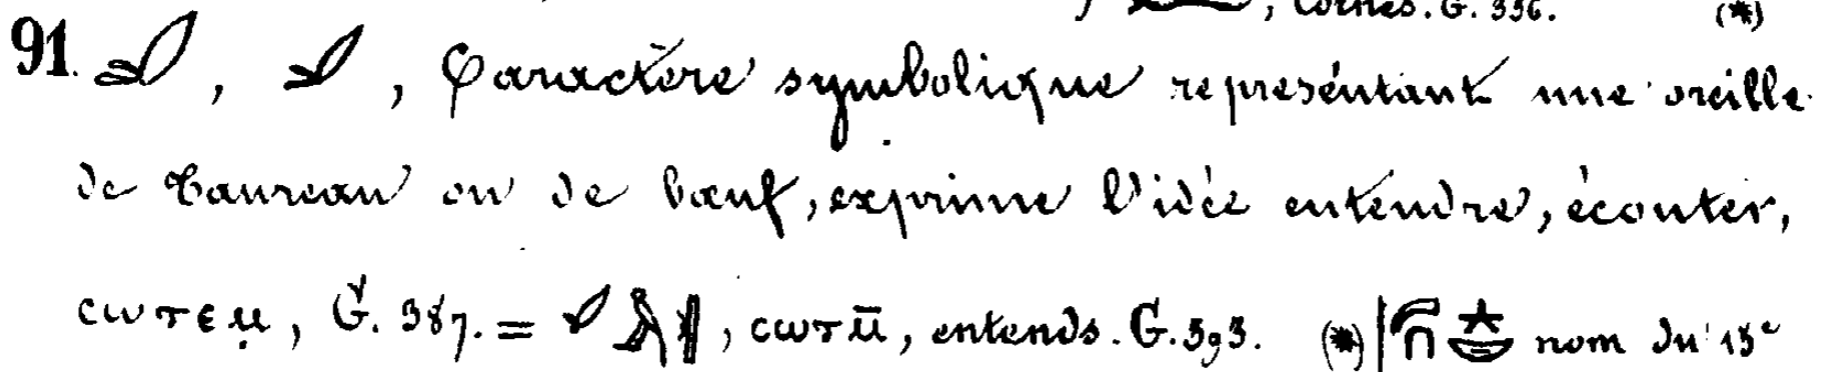 , cornes. G. 336. (*)
91. 𓄔, 𓄔, Caractère symbolique représentant une oreille
de taureau ou de bœuf, exprime l'idée entendre, écouter,
ⲥⲱⲧⲉⲙ, G. 387. = , ⲥⲱⲧⲙ̄, entends. G. 393. (*) nom du 13e